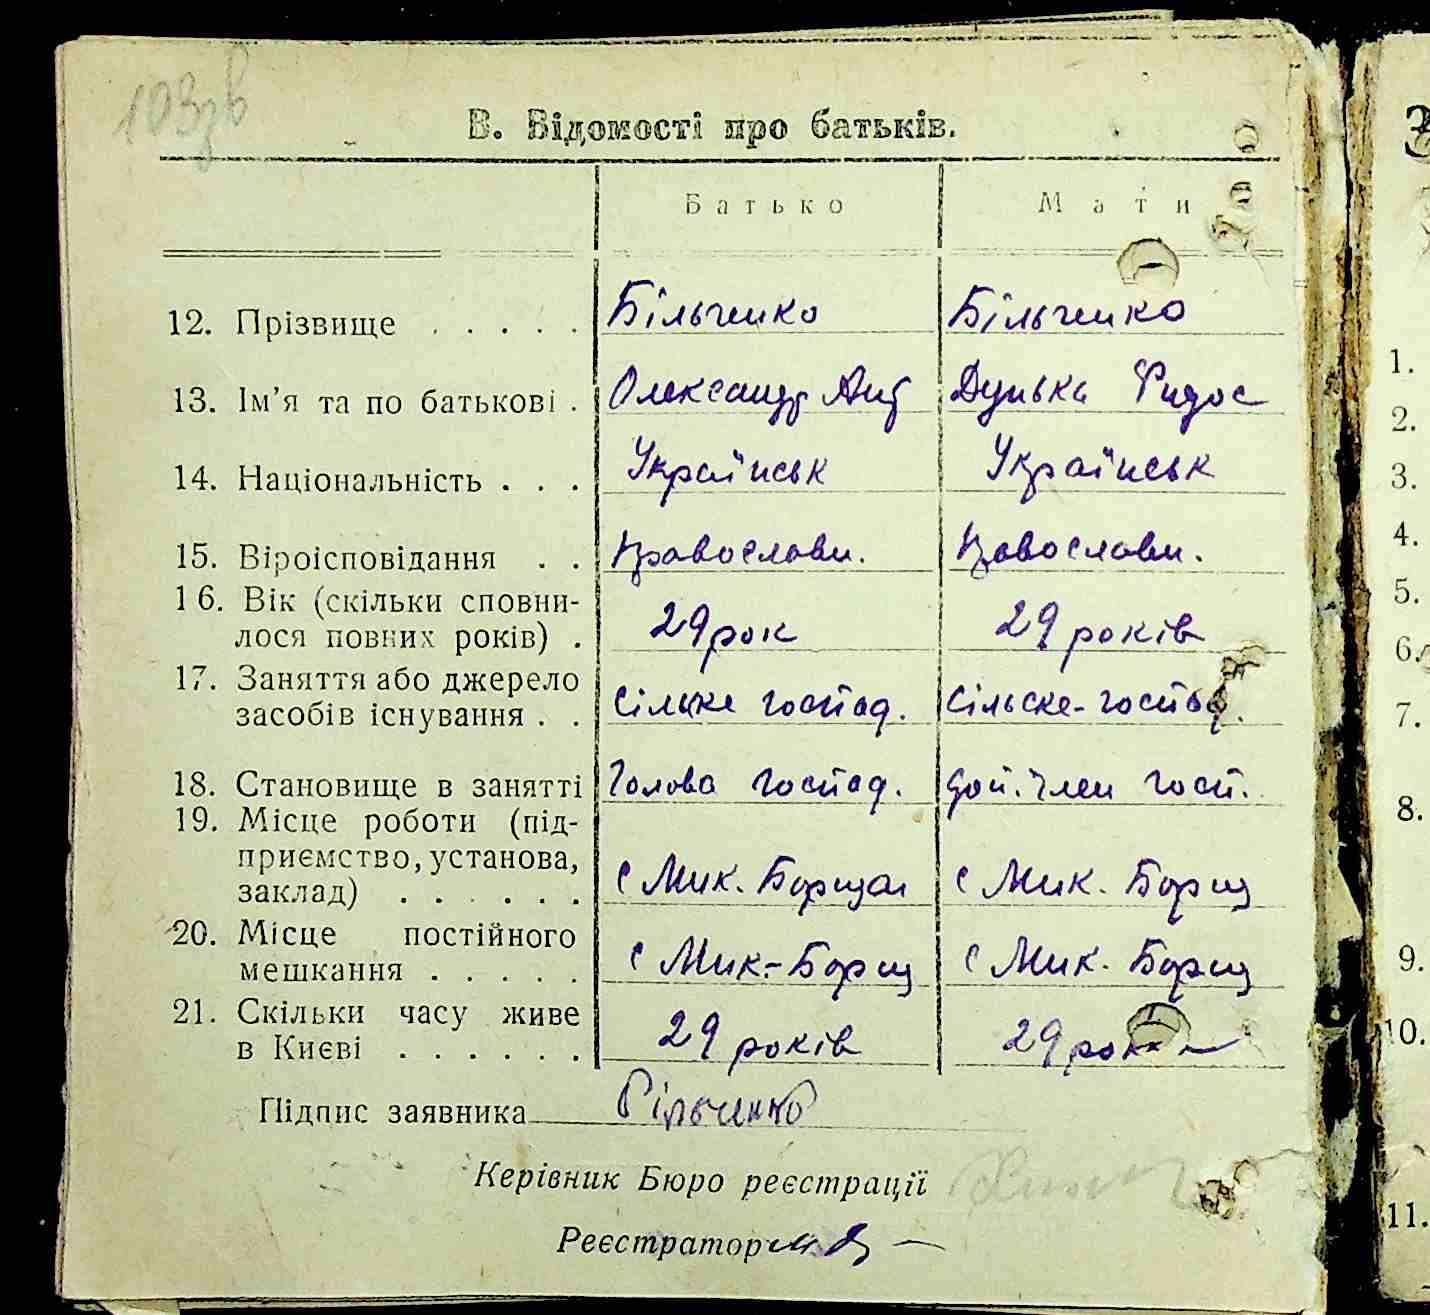 103зв
В. Відомості про батьків.
Батько Мати
12. Прізвище . . . . . Більченко Більченко
13. Ім'я та по батькові . Олександр Ант Дунька Фидос
14. Національність . . . Українськ Українськ
15. Віроісповідання . . Православн. Павославн.
16. Вік (скільки сповни-
лося повних років) . 29 рок 29 років
17. Заняття або джерело
засобів існування . . Сільске господ. Сільске-господ.
18. Становище в занятті Голова господ. доп. член госп.
19. Місце роботи (під-
приємство, установа,
заклад) . . . . . . с Мик. Борщаг с Мик. Борщ
20. Місце постійного
мешкання . . . . . с Мик.-Борщ с Мик. Борщ
21. Скільки часу живе
в Києві . . . . . . 29 років 29 рок
Підпис заявника Більченко
Керівник Бюро реєстрації
Реєстратор
З
1.
2.
3.
4.
5.
6.
7.
8.
9.
10.
11.